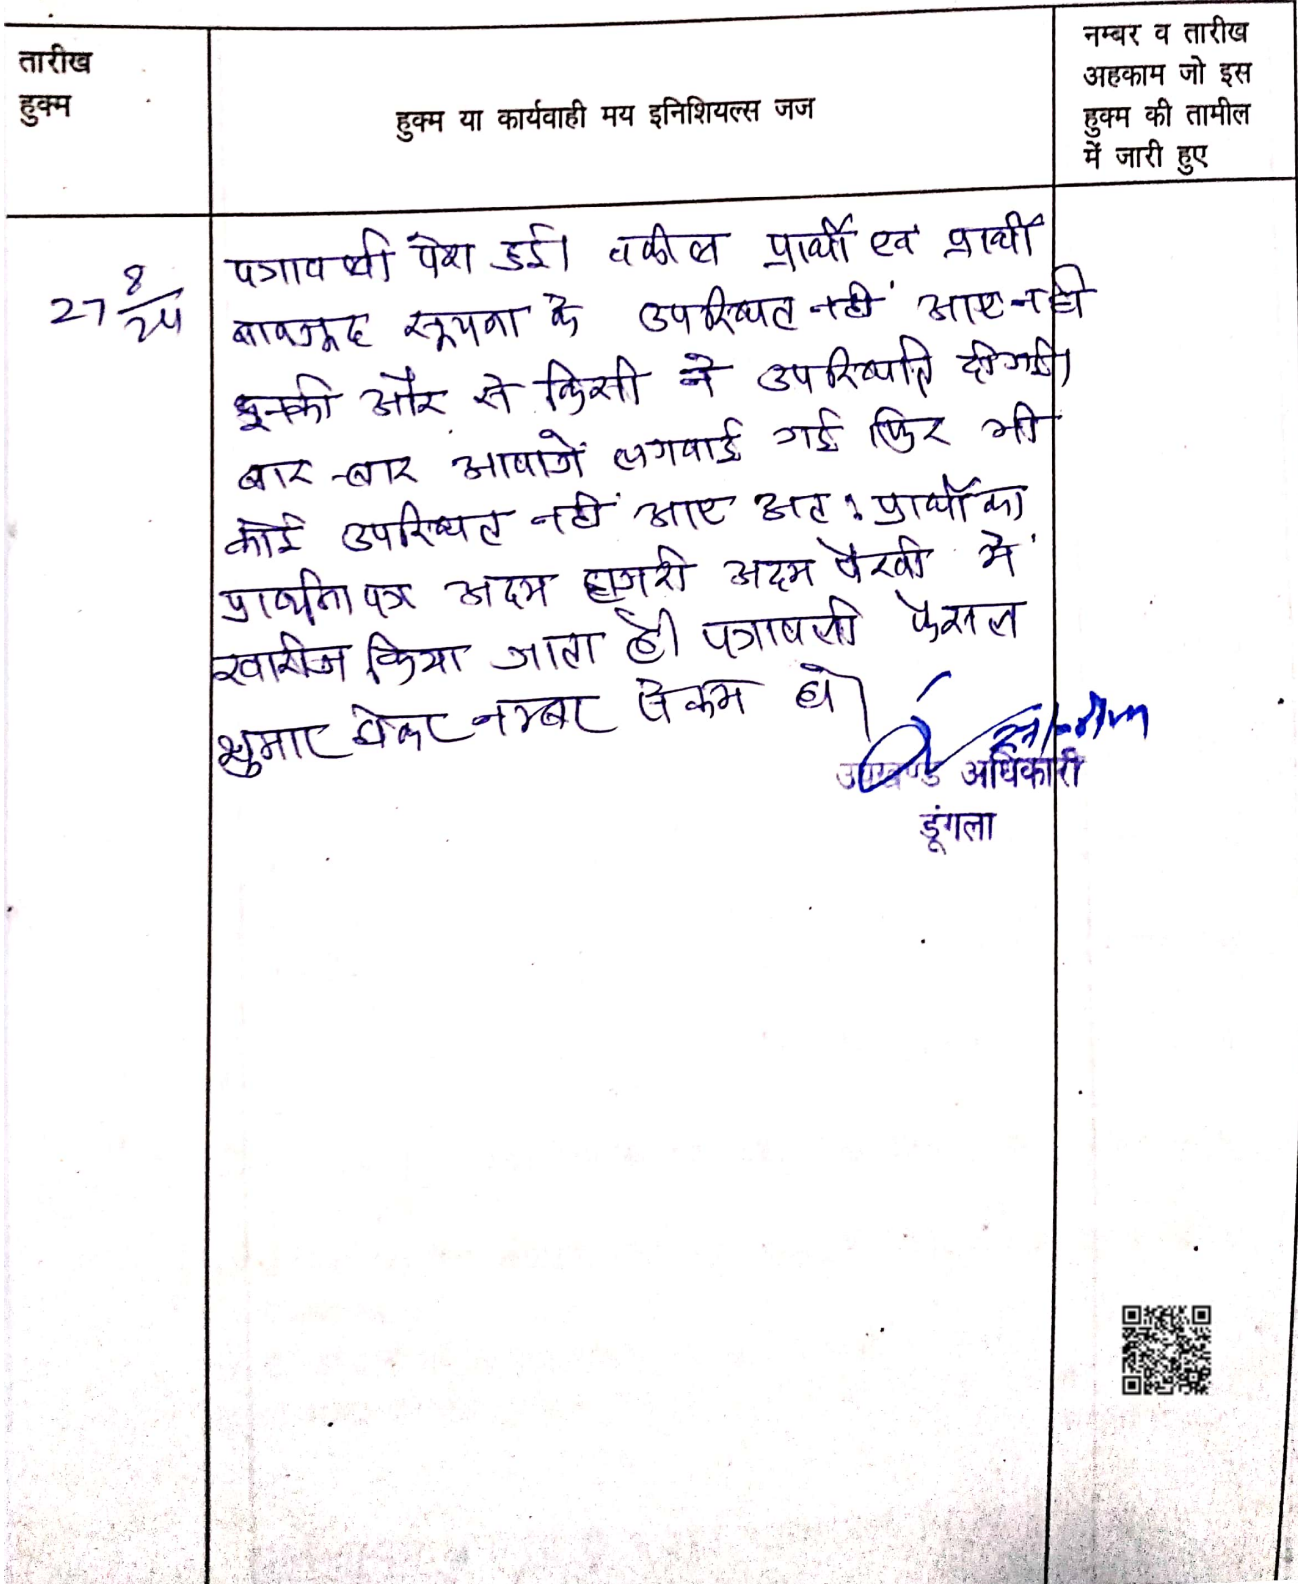 तारीख
हुक्म
हुक्म या कार्यवाही मय इनिशियल्स जज
नम्बर व तारीख
अहकाम जो इस
हुक्म की तामील
में जारी हुए
27 8/24
पत्रावली पेश हुई। वकील प्रार्थी एवं प्रार्थी
बावजूद सूचना के उपस्थित नहीं आए नही
इनकी और से किसी ने उपस्थिति दी गई।
बार-बार आवाजें लगवाई गई फिर भी
कोई उपस्थित नहीं आए अतः प्रार्थी का
प्रार्थना पत्र अदम हाजरी अदम पैरवी में
खारीज किया जाता है। पत्रावली फैसल
शुमार होकर नम्बर से कम हो।
उपखण्ड अधिकारी
डूंगला